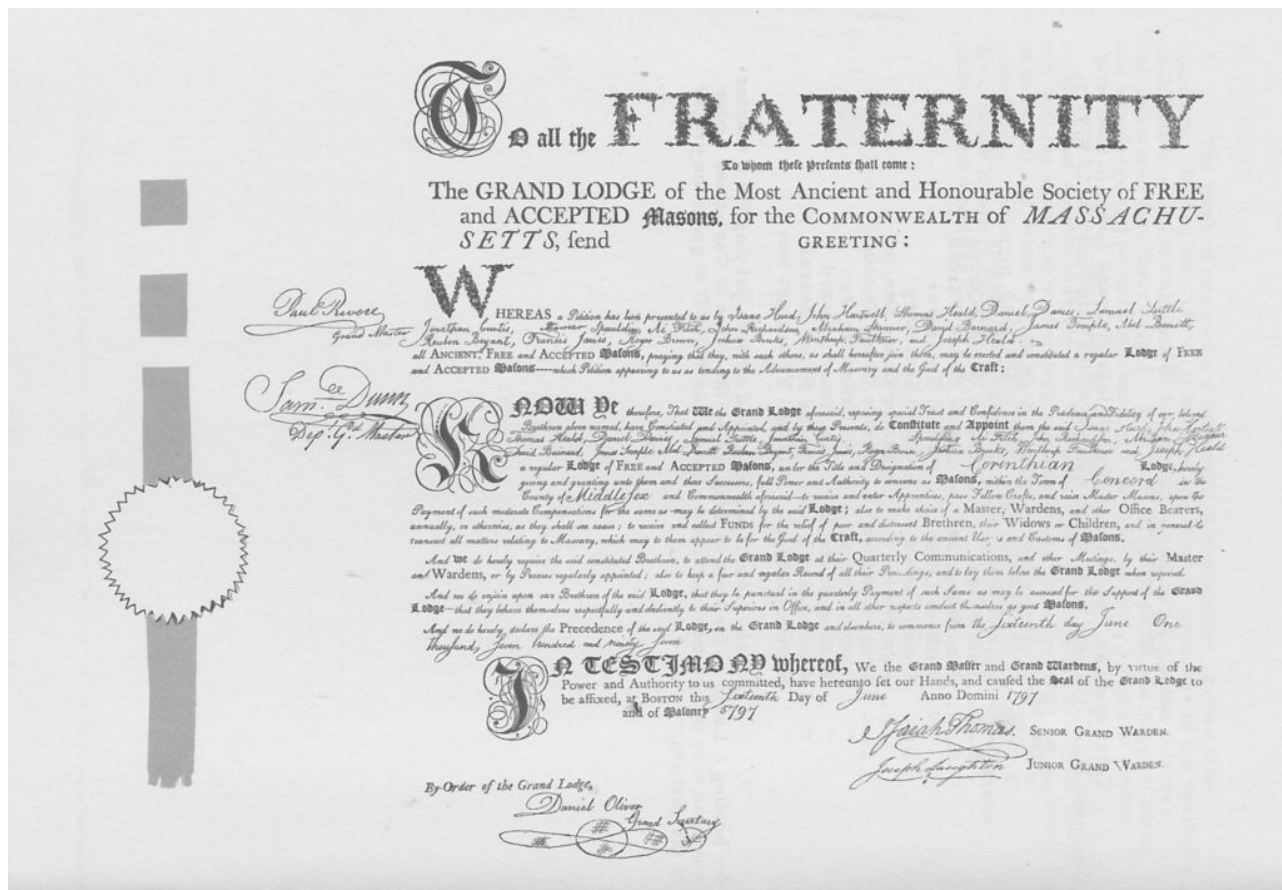 TO all the FRATERNITY
To whom theſe Preſents ſhall come :
The GRAND LODGE of the Most Ancient and Honourable Society of FREE
and ACCEPTED Maſons, for the COMMONWEALTH of MASSACHU-
SETTS, ſend GREETING :
Paul Revere
Grand Master
WHEREAS a Petition has been presented to us by Isaac Hurd, John Hartwell, Thomas Heald, Daniel Davies, Samuel Tuttle
Jonathan Curtis, Spaulding, Ai Fitch, John Richardson, Abraham Skinner, David Barnard, James Temple, Abel Barrett,
Reuben Bryant, Francis Jarvis, Roger Brown, Joshua Brooks, Winthrop Faulkner, and Joseph Heald.
all ANCIENT, FREE and ACCEPTED Maſons, praying that they, with such others, as shall hereafter join them, may be erected and constituted a regular Lodge of FREE
and ACCEPTED Maſons—which Petition appearing to us as tending to the Advancement of Masonry and the Good of the Craft :
Sam.ee Dunn
Dep.t G.d Master
KNOW Ye therefore, That We the Grand Lodge aforesaid, reposing special Trust and Confidence in the Prudence and Fidelity of our beloved
Brethren above named, have Constituted and Appointed, and by these Presents, do Constitute and Appoint them the said Isaac Hurd, John Hartwell
Thomas Heald, Daniel Davies, Samuel Tuttle, Jonathan Curtis, Spaulding Ai Fitch, John Richardson, Abraham Skinner
David Barnard, James Temple Abel Barrett Reuben Bryant, Francis Jarvis, Roger Brown, Joshua Brooks, Winthrop Faulkner and Joseph Heald
a regular Lodge of FREE and ACCEPTED Maſons, under the Title and Designation of Corinthian Lodge, hereby
giving and granting unto them and their Successors, full Power and Authority to convene as Maſons, within the Town of Concord in the
County of Middleſex and Commonwealth aforesaid—to receive and enter Apprentices, pass Fellow Crafts, and raise Master Masons, upon the
Payment of such moderate Compensations for the same as may be determined by the said Lodge ; also to make choice of a Master, Wardens, and other Office Bearers,
annually, or otherwise, as they shall see cause ; to receive and collect FUNDS for the relief of poor and distressed Brethren, their Widows or Children, and in general to
transact all matters relating to Masonry, which may to them appear to be for the Good of the Craft, according to the ancient Usages and Customs of Maſons.
And we do hereby require the said constituted Brethren, to attend the Grand Lodge at their Quarterly Communications, and other Meetings, by their Master
and Wardens, or by Proxies regularly appointed ; also to keep a fair and regular Record of all their Proceedings, and to lay them before the Grand Lodge when required
And we do enjoin upon our Brethren of the said Lodge, that they be punctual in the quarterly Payment of such Sums as may be assessed for the Support of the Grand
Lodge—that they behave themselves respectfully and obediently to their Superiors in Office, and in all other respects conduct themselves as good Maſons.
And we do hereby declare the Precedence of the said Lodge, in the Grand Lodge and elsewhere, to commence from the Sixteenth day June One
thousand, seven hundred and ninety seven
IN TESTIMONY whereof, We the Grand Maſter and Grand Wardens, by virtue of the
Power and Authority to us committed, have hereunto ſet our Hands, and cauſed the Seal of the Grand Lodge to
be affixed, at BOSTON this Sixteenth Day of June Anno Domini 1797
and of Maſonry 5797
Isaiah Thomas. SENIOR GRAND WARDEN.
Joseph Laughton JUNIOR GRAND WARDEN.
By Order of the Grand Lodge,
Daniel Oliver
Grand Secretary